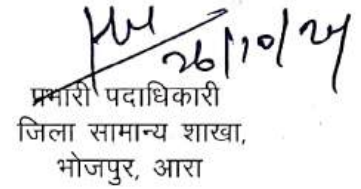 26/10/24
प्रभारी पदाधिकारी
जिला सामान्य शाखा,
भोजपुर, आरा